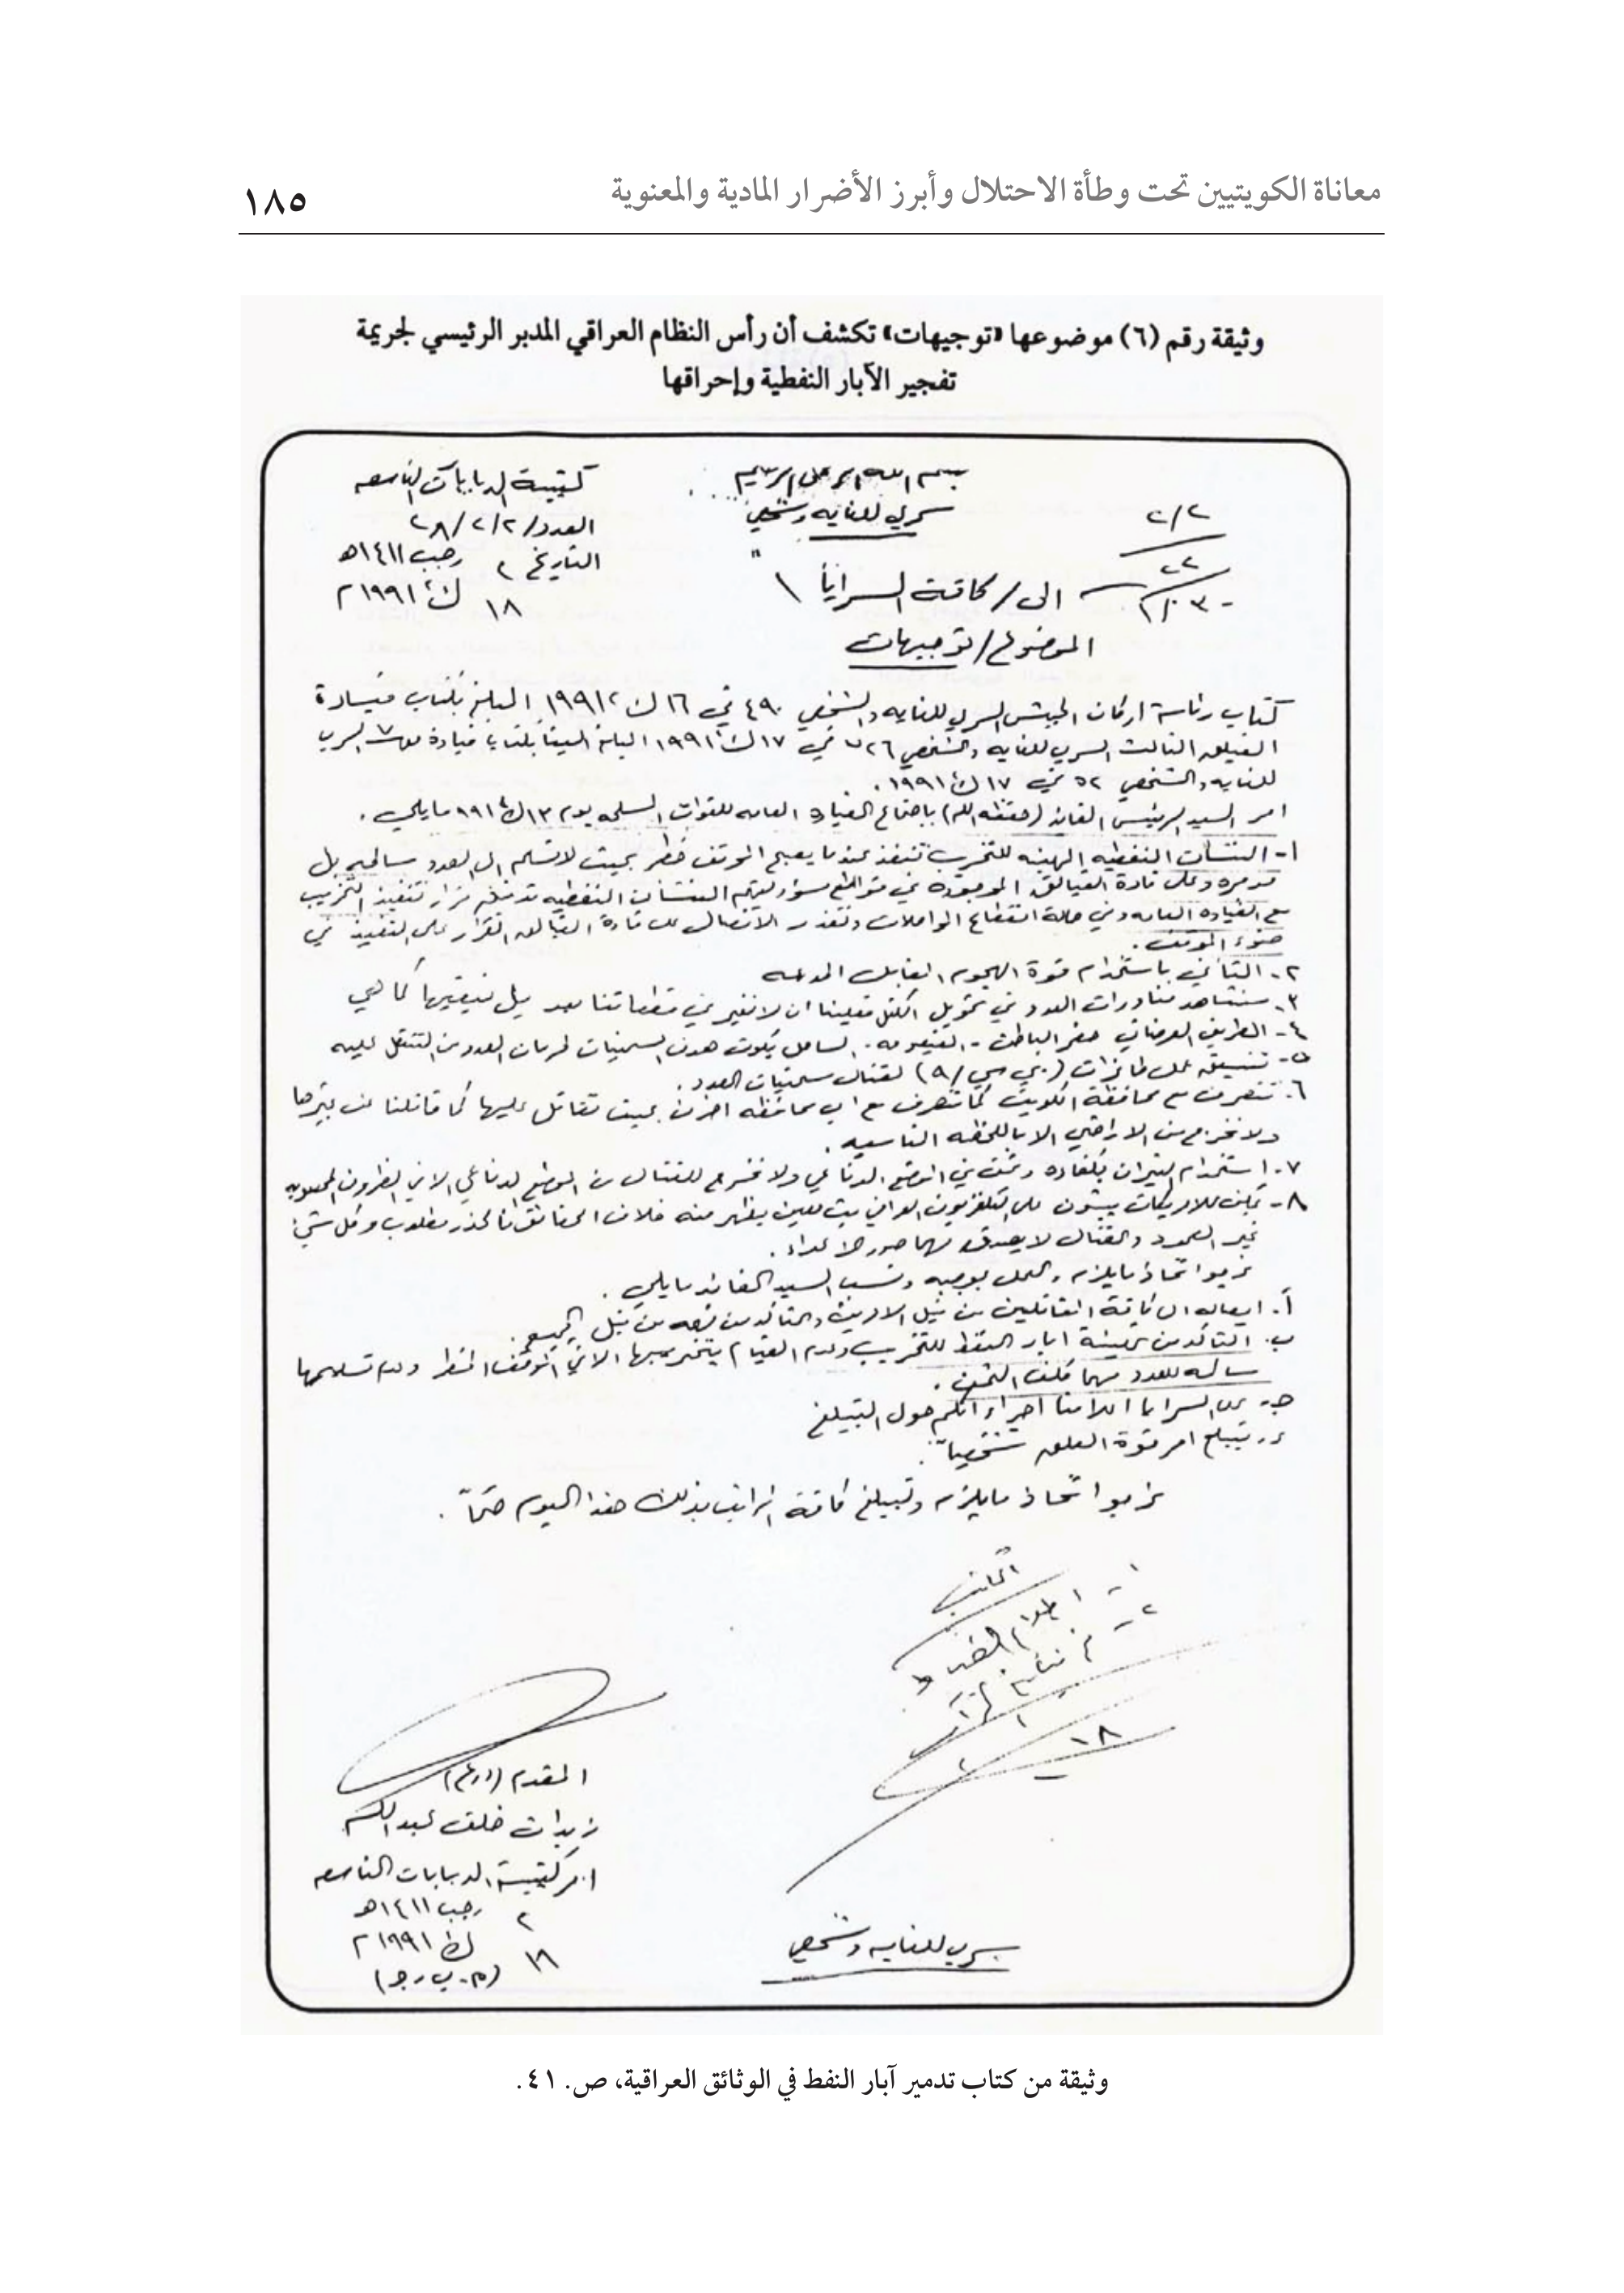 معاناة الكويتيين تحت وطأة الاحتلال وأبرز الأضرار المادية والمعنوية
١٨٥
وثيقة رقم (٦) موضوعها «توجيهات» تكشف أن رأس النظام العراقي المدبر الرئيسي لجريمة
تفجير الآبار النفطية وإحراقها
بسم الله الرحمن الرحيم
سري للغايه وشخصي
كتيبة الدبابات التاسعه
العدد/٢/٢/٢٨
التاريخ ٢ رجب ١٤١١هـ
١٨ ك٢ ١٩٩١م
الى/كافة السرايا
الموضوع/توجيهات
كتاب رئاسة اركان الجيش السري للغايه والشخصي ٤٩٠ في ١٦ ك٢ ١٩٩١ المبلغ بكتاب قيادة
الفيلق الثالث السري للغايه والشخصي في ١٧ ك٢ ١٩٩١ قيادة السري
للغايه والشخصي ٥٢ في ١٧ ك٢ ١٩٩١.
امر السيد الرئيس القائد (حفظه الله) باجتماع القياده العامه للقوات المسلحه يوم ١٣ ك٢ ١٩٩١ مايلي.
١- المنشآت النفطيه المهيئه للتخريب تنفذ عندما يصبح الموقف خطر بحيث لا تسلم الى العدو سالمه بل
مدمره وعلى قادة الفيالق الموجوده في قواطع مسؤوليتهم المنشات النفطيه قرار تنفيذ التخريب
مع القياده العامه وفي حالة انقطاع المواصلات وتعذر الاتصال على قادة الفيالق القرار على التنفيذ في
ضوء الموقف.
٢- التأني باستخدام قوة الهجوم المقابل المدرعه
٣- سنشاهد مناورات العدو في تحويل الكتل فعلينا ان لا نغير في قطعاتنا بل نبقيها كما هي
٤- الطريق العرضاني حفر الباطن - القيصومه - الساحل يكون هدف السمتيات لحرمان العدو من التنقل عليه
٥- تنسيق عمل طائرات (بي سي/٩) لقتال سمتيات العدو.
٦- نتصرف مع محافظة الكويت كما نتصرف مع اي محافظه اخرى بحيث نقاتل عليها كما قاتلنا عن غيرها
ولا نخرج من الاراضي الا باللحظه
٧- استخدام النيران بكفاءه في الموضع الدفاعي ولا نخرج للقتال من الموضع الدفاعي الا في الظروف المحسوبه
٨- يمكن للامريكان يبثون على التلفزيون العراقي بث معين يظهر منه خلاف الحقائق فالحذر مطلوب وكل شيئ
غير الصمود والقتال لا يصدق مهما صور الاعداء.
نرجوا اتخاذ مايلزم والعمل بموجبه ونسب السيد القائد مايلي.
أ. ايصاله الى كافة المقاتلين من قبل الامرين والتأكد من فهمه من قبل الجميع.
ب. التاكد من تهيئة ابار النفط للتخريب وعدم القيام بتخريبها الا في الموقف الخطر وعدم تسليمها
سالمه للعدو مهما كلف الثمن.
جـ. على السرايا اعلامنا اجراءاتكم حول التبليغ
شخصياً.
نرجوا اتخاذ مايلزم وتبليغ كافة المراتب بذلك هذا اليوم حتماً.
١٨
المقدم
خلف عبد
امر كتيبة الدبابات التاسعه
٢ رجب ١٤١١هـ
١٨ ك٢ ١٩٩١م
سري للغايه وشخصي
وثيقة من كتاب تدمير آبار النفط في الوثائق العراقية، ص. ٤١.